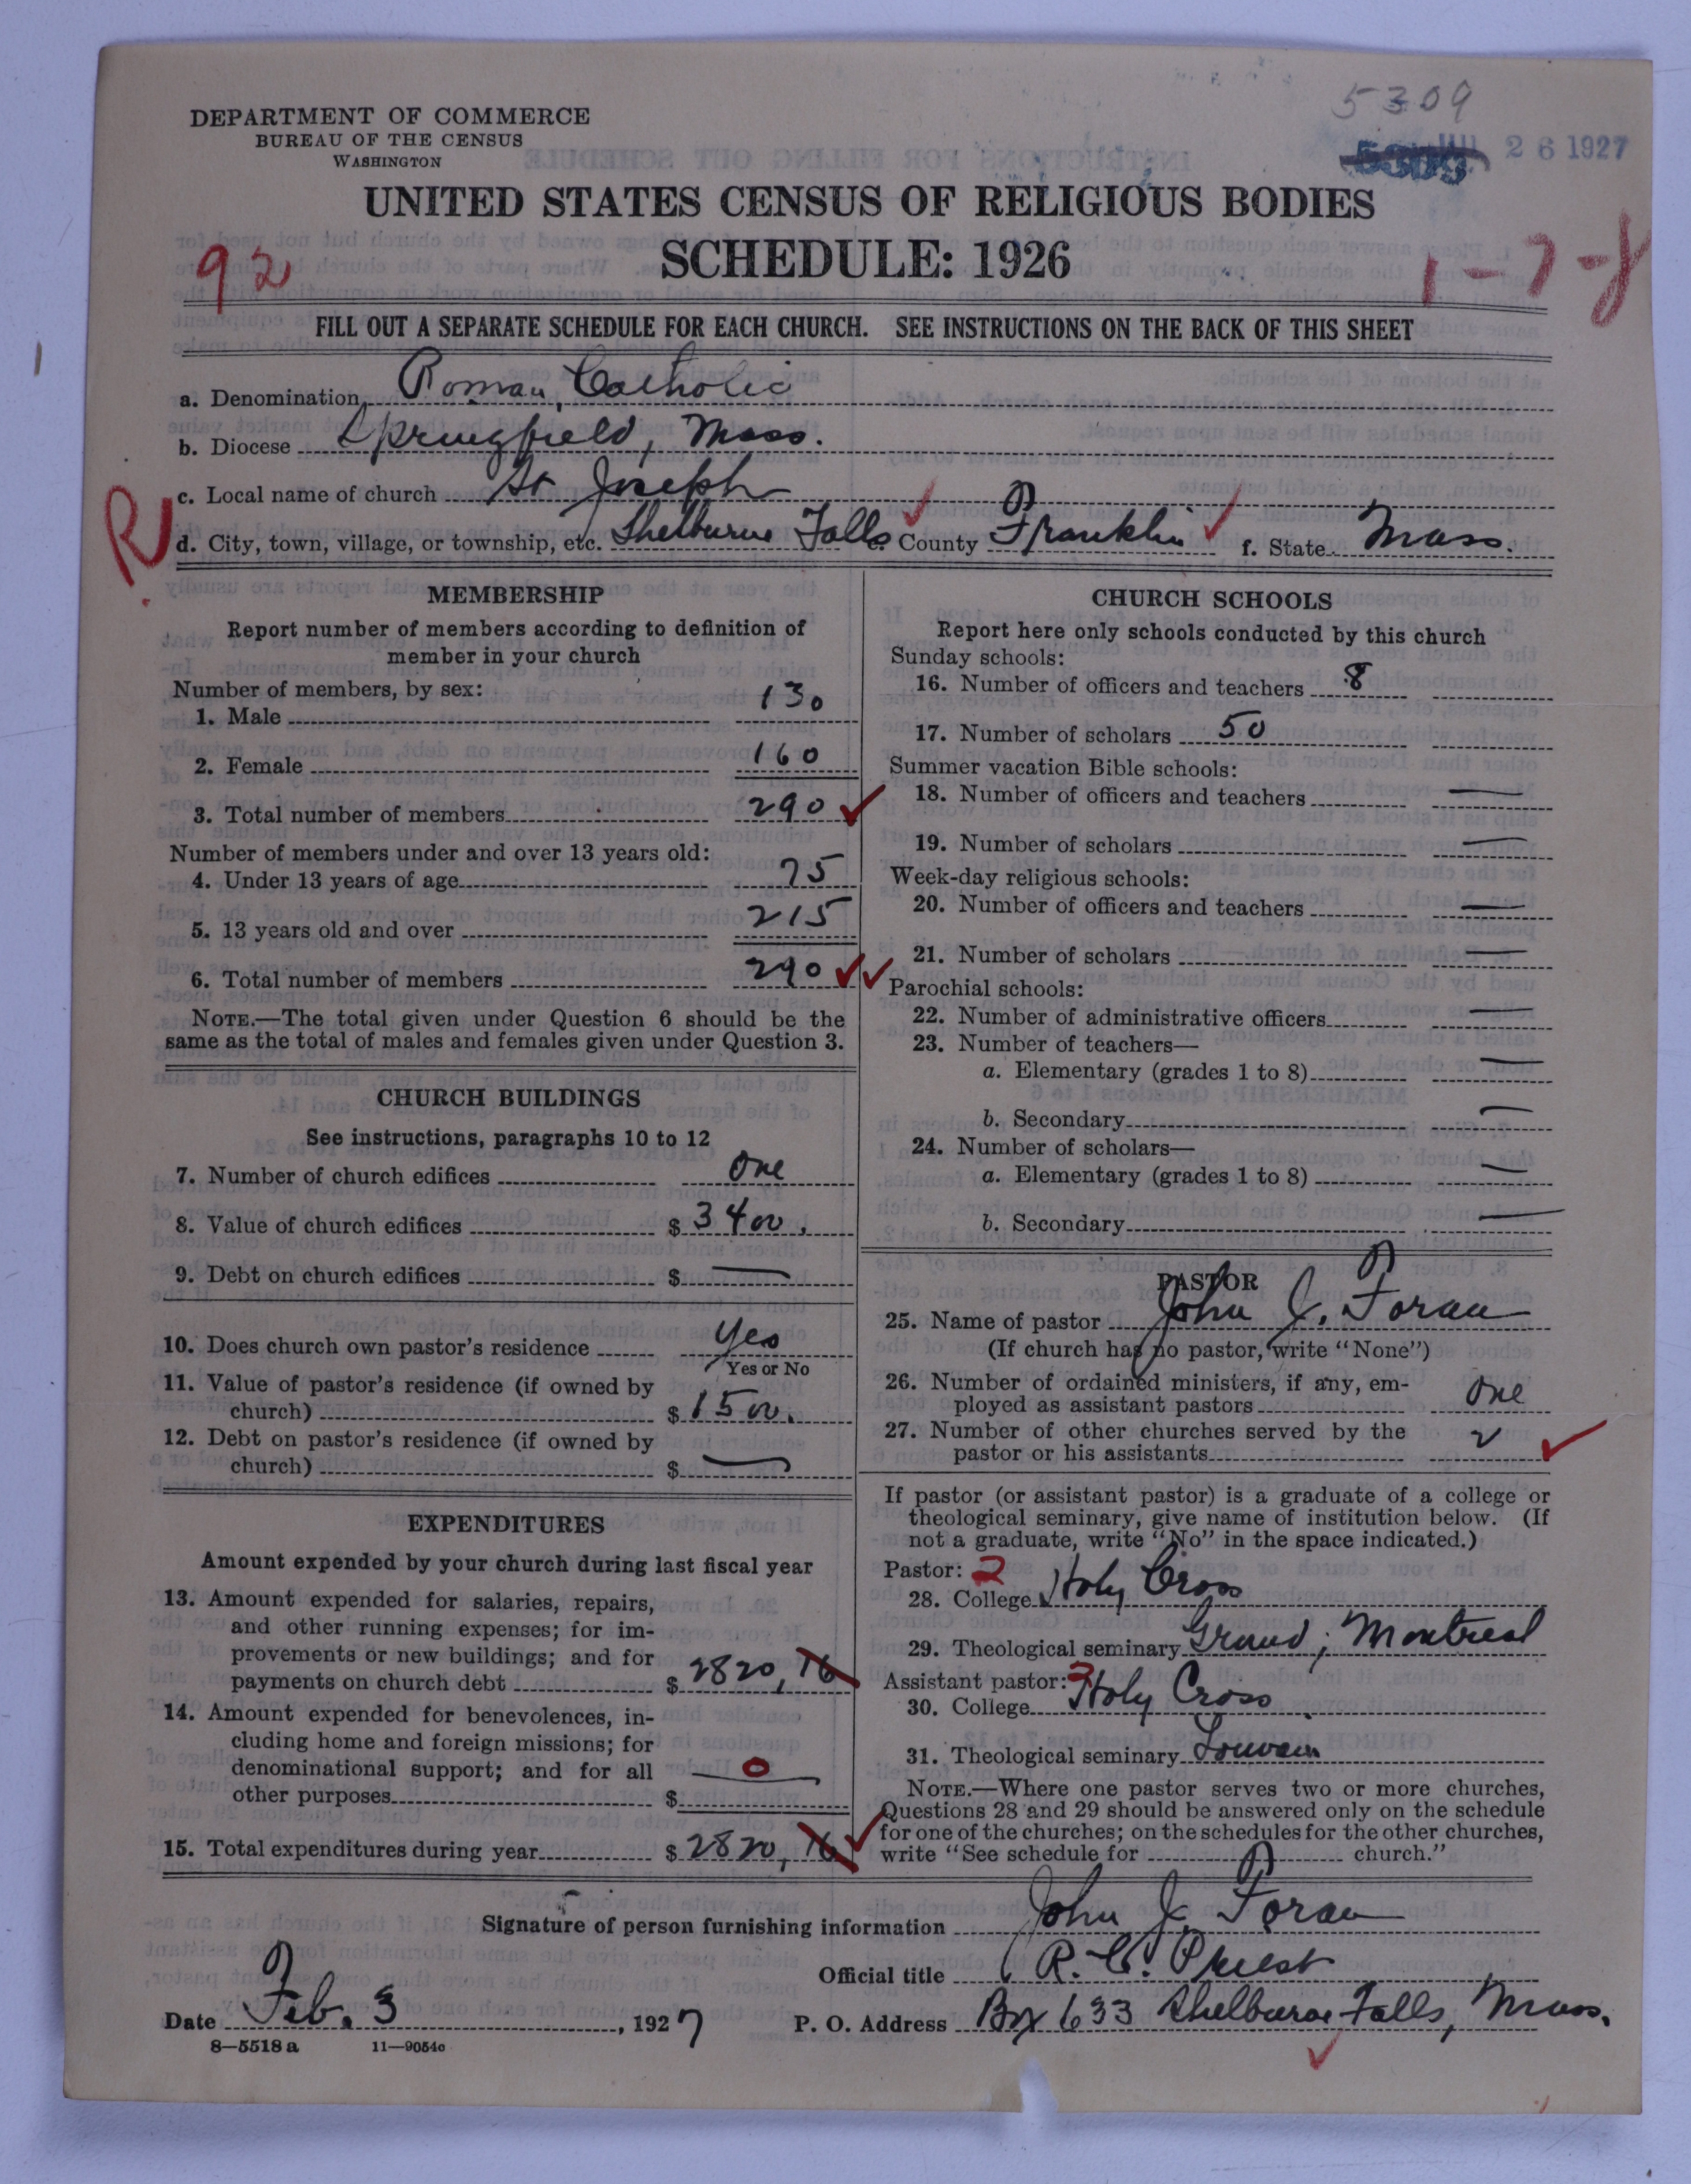 5309
26 1927
DEPARTMENT OF COMMERCE
BUREAU OF THE CENSUS
WASHINGTON
UNITED STATES CENSUS OF RELIGIOUS BODIES
SCHEDULE: 1926
92
FILL OUT A SEPARATE SCHEDULE FOR EACH CHURCH. SEE INSTRUCTIONS ON THE BACK OF THIS SHEET
a. Denomination Roman Catholic
b. Diocese Springfield, Mass.
c. Local name of church St Joseph
R
d. City, town, village, or township, etc. Shelburne Falls e. County Franklin f. State Mass.
MEMBERSHIP
Report number of members according to definition of
member in your church
Number of members, by sex:
1. Male 130
2. Female 160
3. Total number of members 290
Number of members under and over 13 years old:
4. Under 13 years of age 75
5. 13 years old and over 215
6. Total number of members 290
NOTE.—The total given under Question 6 should be the
same as the total of males and females given under Question 3.
CHURCH BUILDINGS
See instructions, paragraphs 10 to 12
7. Number of church edifices One
8. Value of church edifices $ 3400.
9. Debt on church edifices $ —
10. Does church own pastor's residence Yes
Yes or No
11. Value of pastor's residence (if owned by
church) $ 1500.
12. Debt on pastor's residence (if owned by
church) $ —
EXPENDITURES
Amount expended by your church during last fiscal year
13. Amount expended for salaries, repairs,
and other running expenses; for im-
provements or new buildings; and for
payments on church debt $ 2820, 16
14. Amount expended for benevolences, in-
cluding home and foreign missions; for
denominational support; and for all 0
other purposes $
15. Total expenditures during year $ 2820, 16
CHURCH SCHOOLS
Report here only schools conducted by this church
Sunday schools:
16. Number of officers and teachers 8
17. Number of scholars 50
Summer vacation Bible schools:
18. Number of officers and teachers —
19. Number of scholars —
Week-day religious schools:
20. Number of officers and teachers —
21. Number of scholars —
Parochial schools:
22. Number of administrative officers —
23. Number of teachers—
a. Elementary (grades 1 to 8) —
b. Secondary —
24. Number of scholars—
a. Elementary (grades 1 to 8) —
b. Secondary —
PASTOR
25. Name of pastor John J. Foran
(If church has no pastor, write "None")
26. Number of ordained ministers, if any, em-
ployed as assistant pastors One
27. Number of other churches served by the
pastor or his assistants 2
If pastor (or assistant pastor) is a graduate of a college or
theological seminary, give name of institution below. (If
not a graduate, write "No" in the space indicated.)
Pastor: 2
28. College Holy Cross
29. Theological seminary Grand, Montreal
Assistant pastor: 2
30. College Holy Cross
31. Theological seminary Louvain
NOTE.—Where one pastor serves two or more churches,
Questions 28 and 29 should be answered only on the schedule
for one of the churches; on the schedules for the other churches,
write "See schedule for church."
Signature of person furnishing information John J. Foran
Official title R. C. Priest
Date Feb. 3, 1927 P. O. Address Box 633 Shelburne Falls, Mass.
8—5518 a 11—9054c